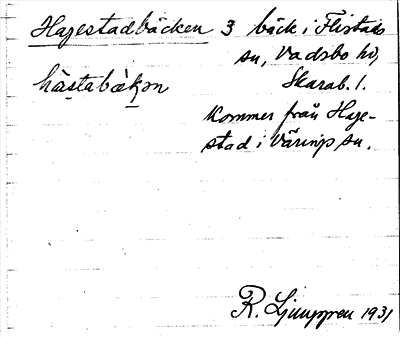 Hagestadbäcken 3 bäck i Flistads
sn, Vadsbo hd,
Skarab. l.
hàsṭabæ̀kən
Kommer från Hage-
stad i Väring sn.
R. Ljunggren 1931